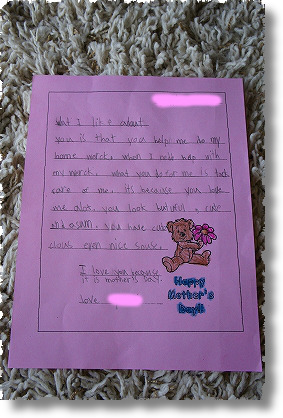 What I like about
you is that you help me do my
home worck, when I need help with
my worck. what you do for me is tack
care of me. it's because you love
me alot. you look butiful, cute
and asom. you have cut
clous even nice souse.
I love you because
it is mother's Day.
love
Happy
Mother's
Day!!